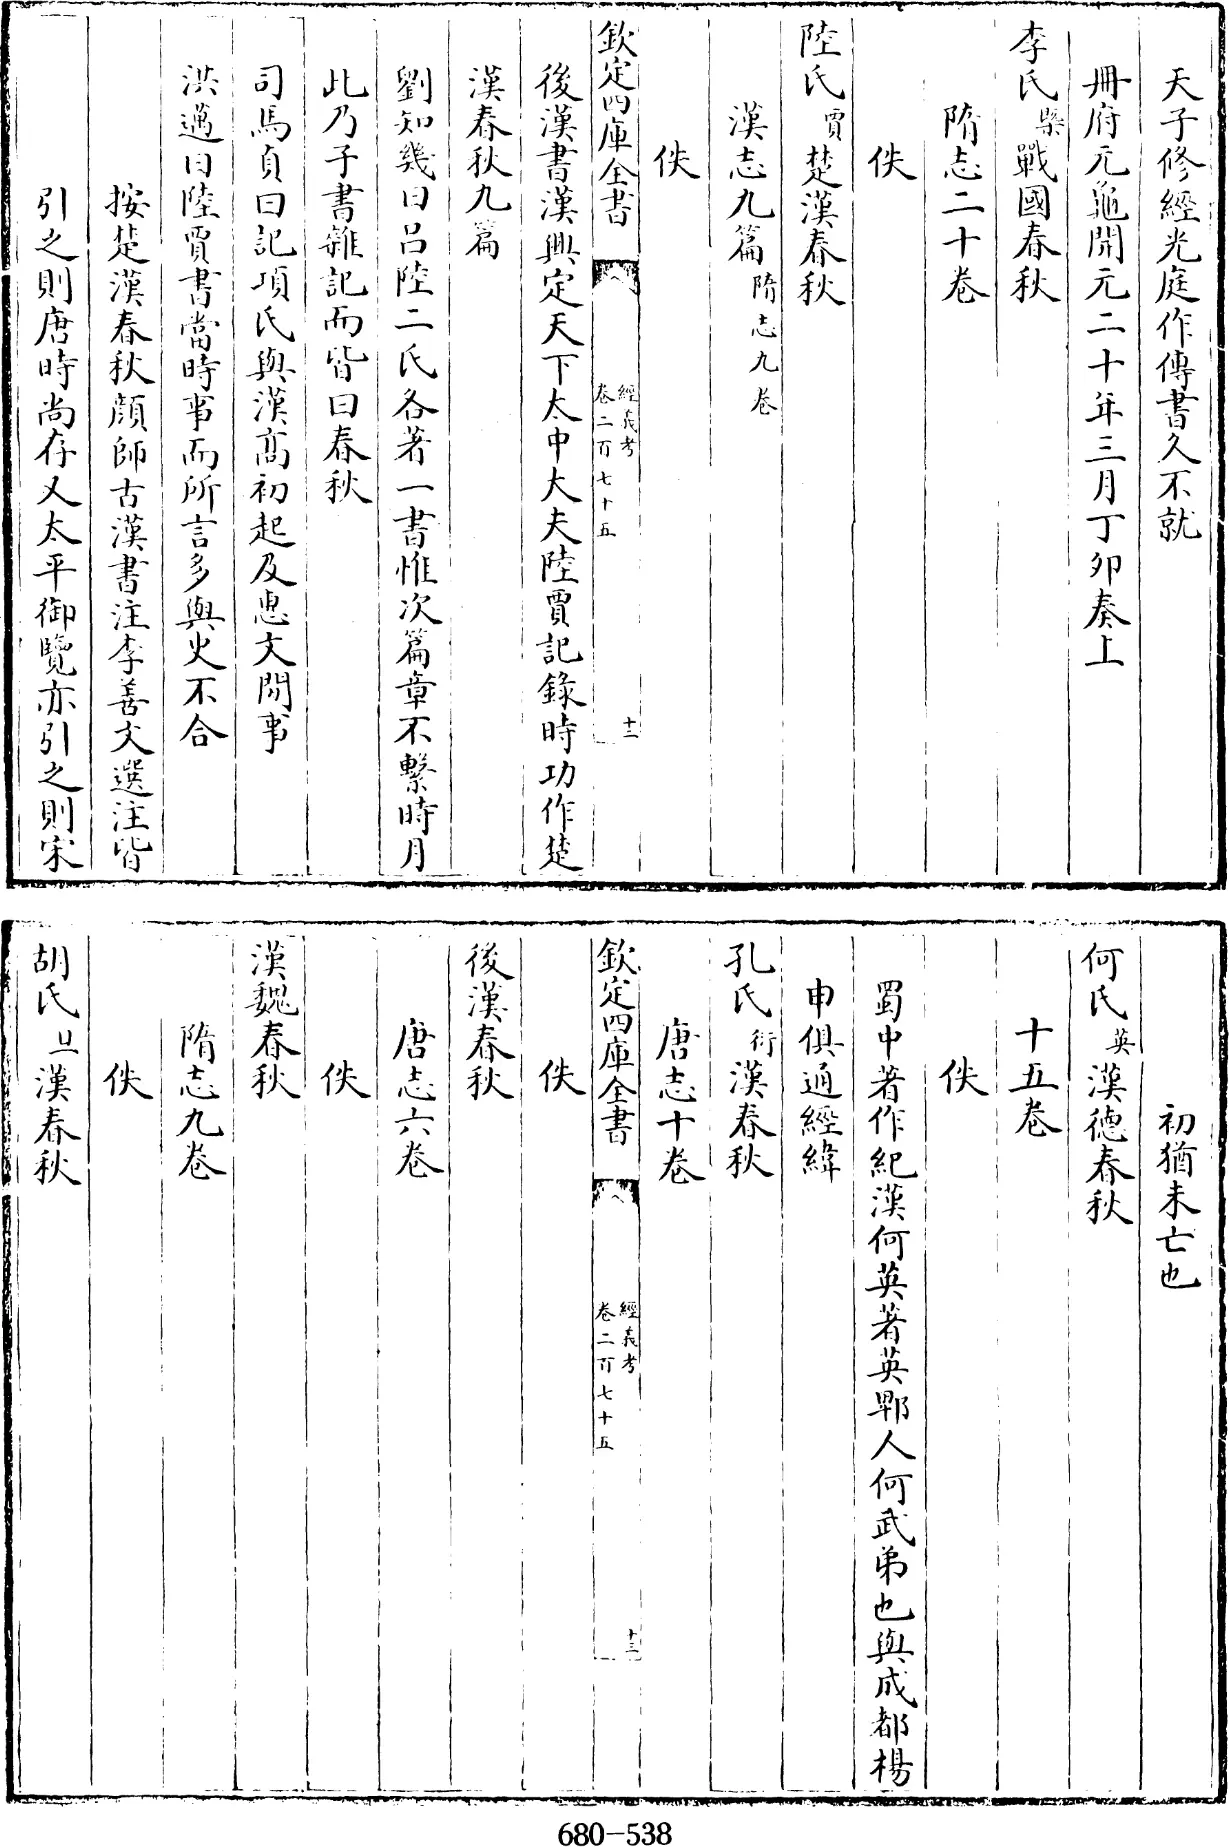 天子修經光庭作傳書久不就
冊府元龜開元二十年三月丁卯奏上
李氏槩戰國春秋
隋志二十卷
佚
陸氏賈楚漢春秋
漢志九篇隋志九卷
佚
欽定四庫全書
經義考
卷二百七十五
十二
後漢書漢興定天下太中大夫陸賈記錄時功作楚
漢春秋九篇
劉知幾曰呂陸二氏各著一書惟次篇章不繫時月
此乃子書雜記而皆曰春秋
司馬貞曰記項氏與漢髙初起及惠文間事
洪邁曰陸賈書當時事而所言多與史不合
按楚漢春秋顔師古漢書注李善文選注皆
引之則唐時尚存又太平御覽亦引之則宋
初猶未亡也
何氏英漢德春秋
十五卷
佚
蜀中著作紀漢何英著英郫人何武弟也與成都楊
申俱通經緯
孔氏衍漢春秋
唐志十卷
欽定四庫全書
經義考
卷二百七十五
十三
佚
後漢春秋
唐志六卷
佚
漢魏春秋
隋志九卷
佚
胡氏旦漢春秋
680-538